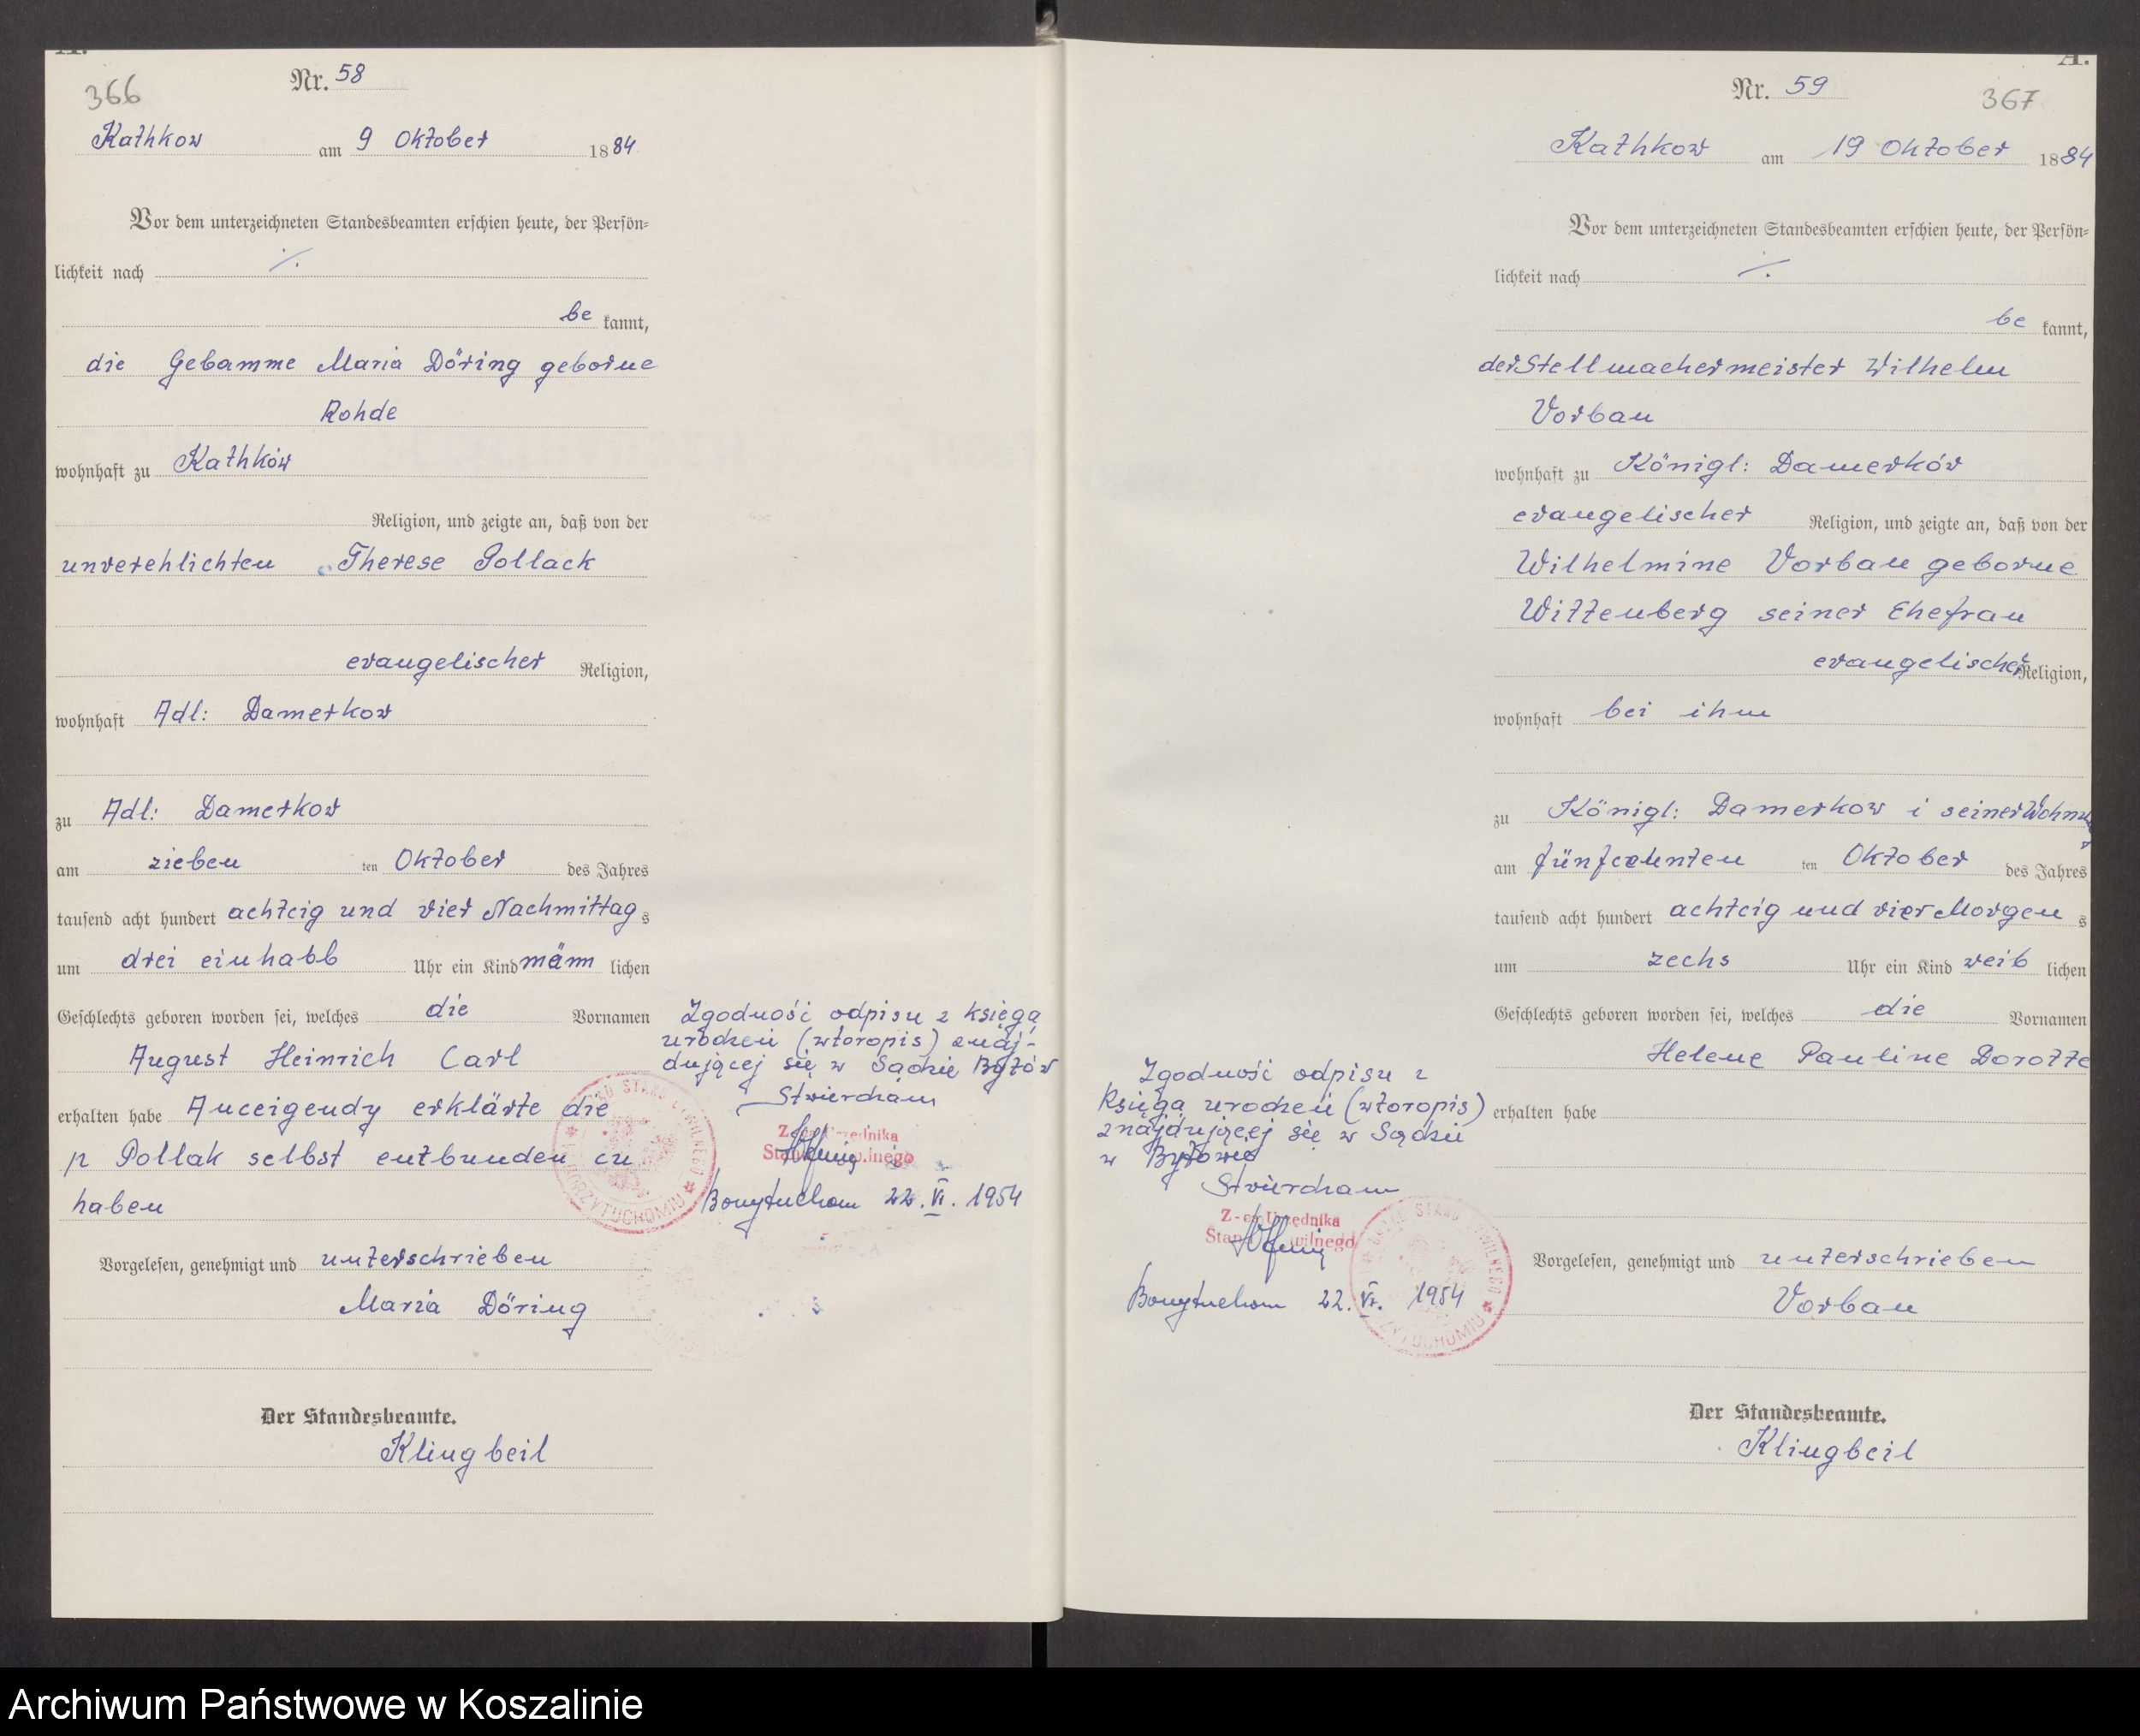 A.
366
Nr. 58
Kathkow am 9 Oktober 1884
Vor dem unterzeichneten Standesbeamten erschien heute, der Persön-
lichkeit nach ./.
be kannt,
die Gebamme Maria Döring geborne
Rohde
wohnhaft zu Kathków
Religion, und zeigte an, daß von der
unverehlichten Therese Pollack
evangelischer Religion,
wohnhaft Adl: Damerkow
zu Adl: Damerkow
am zieben ten Oktober des Jahres
tausend acht hundert achtcig und vier Nachmittag s
um drei einhabb Uhr ein Kind männ lichen
Geschlechts geboren worden sei, welches die Vornamen
August Heinrich Carl
erhalten habe Anceigendy erklärte die
p Pollak selbst entbunden cu
haben
Vorgelesen, genehmigt und unterschrieben
Maria Döring
Der Standesbeamte.
Klingbeil
Zgodność odpisu z księgą
urodzeń (wtoropis) znaj-
dującej się w Sądzie Bytów
Stwierdzam
Z-ca Urzędnika
Stanu Cywilnego
Borzytuchom 22.VI.1954
A.
Nr. 59
367
Kathkow am 19 Oktober 1884
Vor dem unterzeichneten Standesbeamten erschien heute, der Persön-
lichkeit nach ./.
be kannt,
der Stellmachermeister Wilhelm
Vorbau
wohnhaft zu Königl: Damerków
evangelischer Religion, und zeigte an, daß von der
Wilhelmine Vorbau geborne
Wittenberg seiner Ehefrau
evangelischer Religion,
wohnhaft bei ihm
zu Königl: Damerkow i seiner Wohnug
am fünfcehnten ten Oktober des Jahres
tausend acht hundert achtcig und vier Morgen s
um zechs Uhr ein Kind weib lichen
Geschlechts geboren worden sei, welches die Vornamen
Helene Pauline Dorotte
erhalten habe
Vorgelesen, genehmigt und unterschrieben
Vorbau
Der Standesbeamte.
Klingbeil
Zgodność odpisu z
księgą urodzeń (wtoropis)
znajdującej się w Sądzie
w Bytowie
Stwierdzam
Z-ca Urzędnika
Stanu Cywilnego
Borzytuchom 22.VI.1954
Archiwum Państwowe w Koszalinie